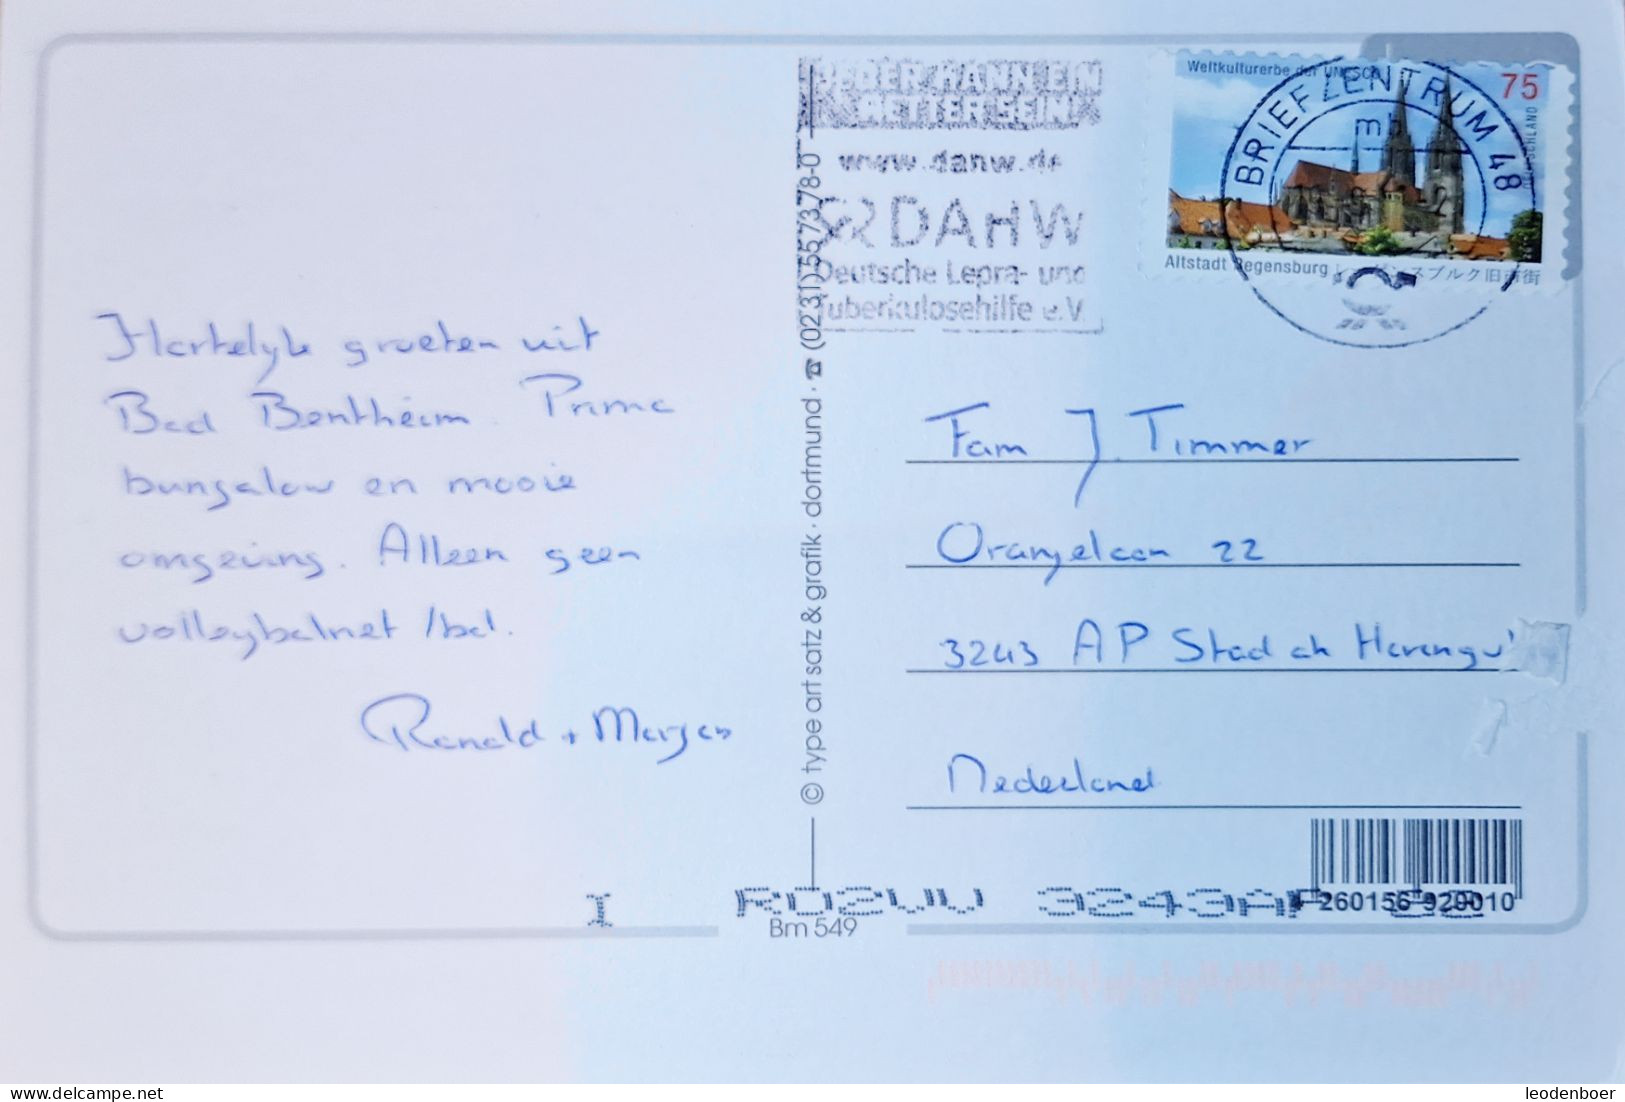 Hartelyk groeten uit
Bad Bentheim. Prima
bungalow en mooie
omgeving. Alleen geen
volleybalnet/bal.
Ronald + Marjan
© type art satz & grafik · dortmund · ☎ (0231) 557378-0
JEDER KANN EIN
RETTER SEIN
www.dahw.de
DAHW
Deutsche Lepra- und
Tuberkulosehilfe e.V.
Weltkulturerbe der UNESCO
75
DEUTSCHLAND
Altstadt Regensburg レーゲンスブルク旧市街
BRIEFZENTRUM 48
mb
Fam J. Timmer
Oranjelaan 22
3243 AP Stad ah Haringvl
Nederland
4 260156 929010
Bm 549
delcampe.net
leodenboer